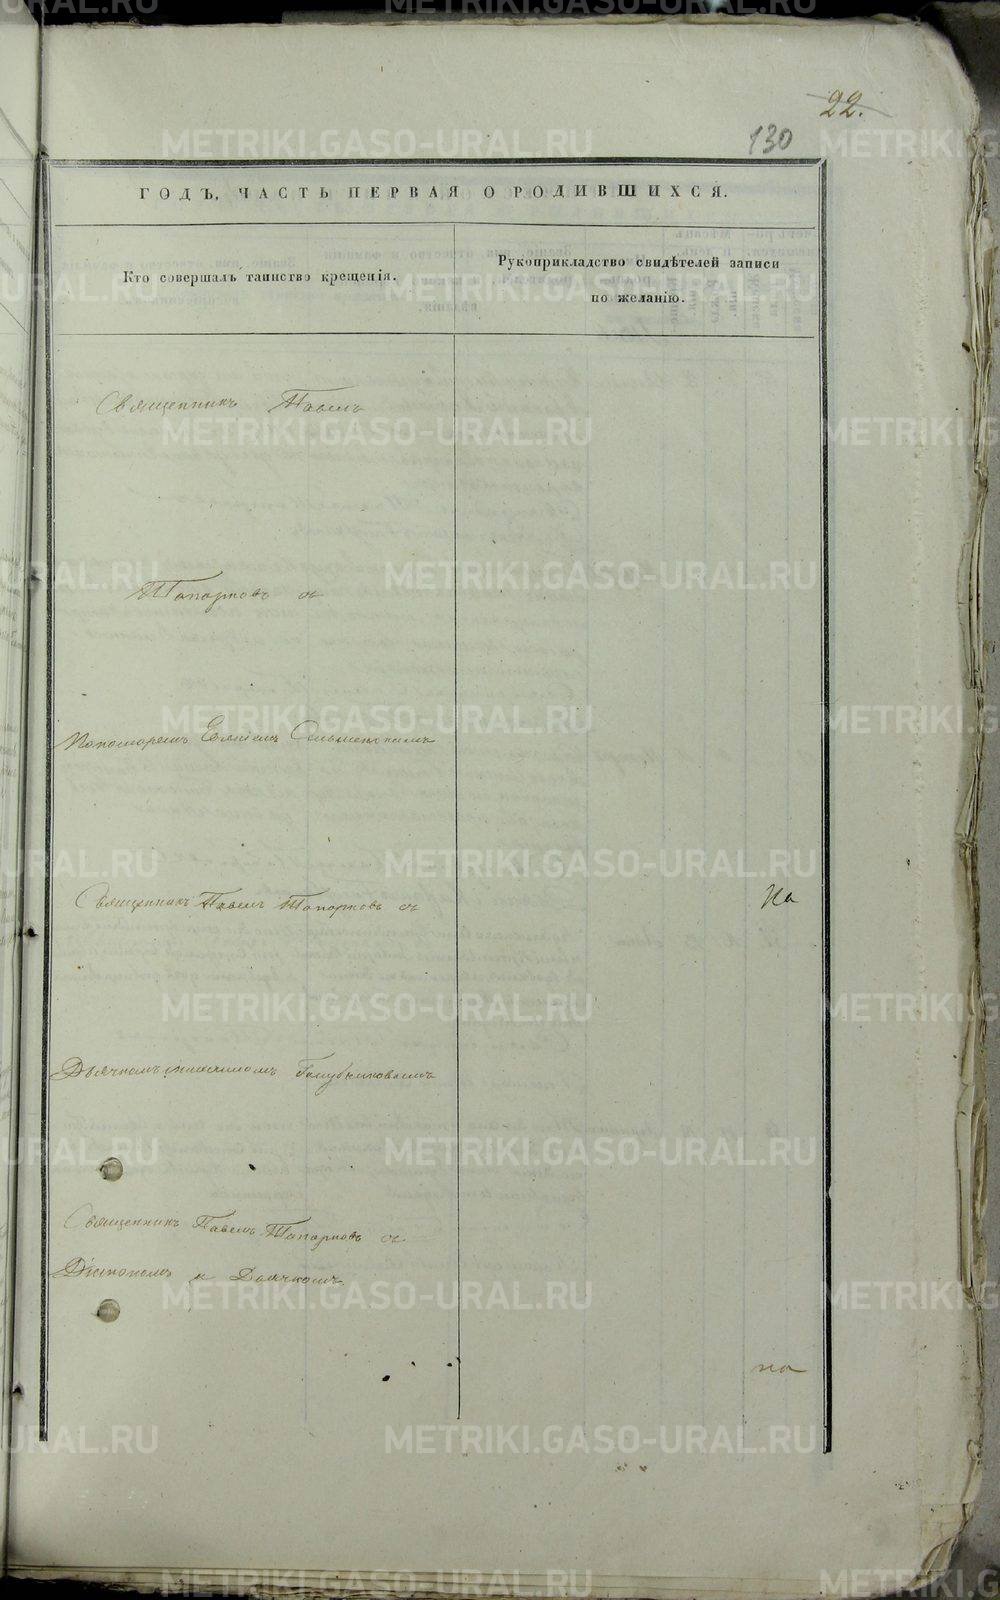 22.
130
ГОДЪ, ЧАСТЬ ПЕРВАЯ О РОДИВШИХСЯ.
Кто совершалъ таинство крещенія.
Рукоприкладство свидѣтелей записи
по желанію.
Священникъ Павелъ
Топорковъ съ
Пономаремъ
Священникъ Павелъ Топорковъ съ
На
Дьячкомъ Голубчиковымъ
Священникъ Павелъ Топорковъ съ
Діакономъ и Дьячкомъ
на
METRIKI.GASO-URAL.RU